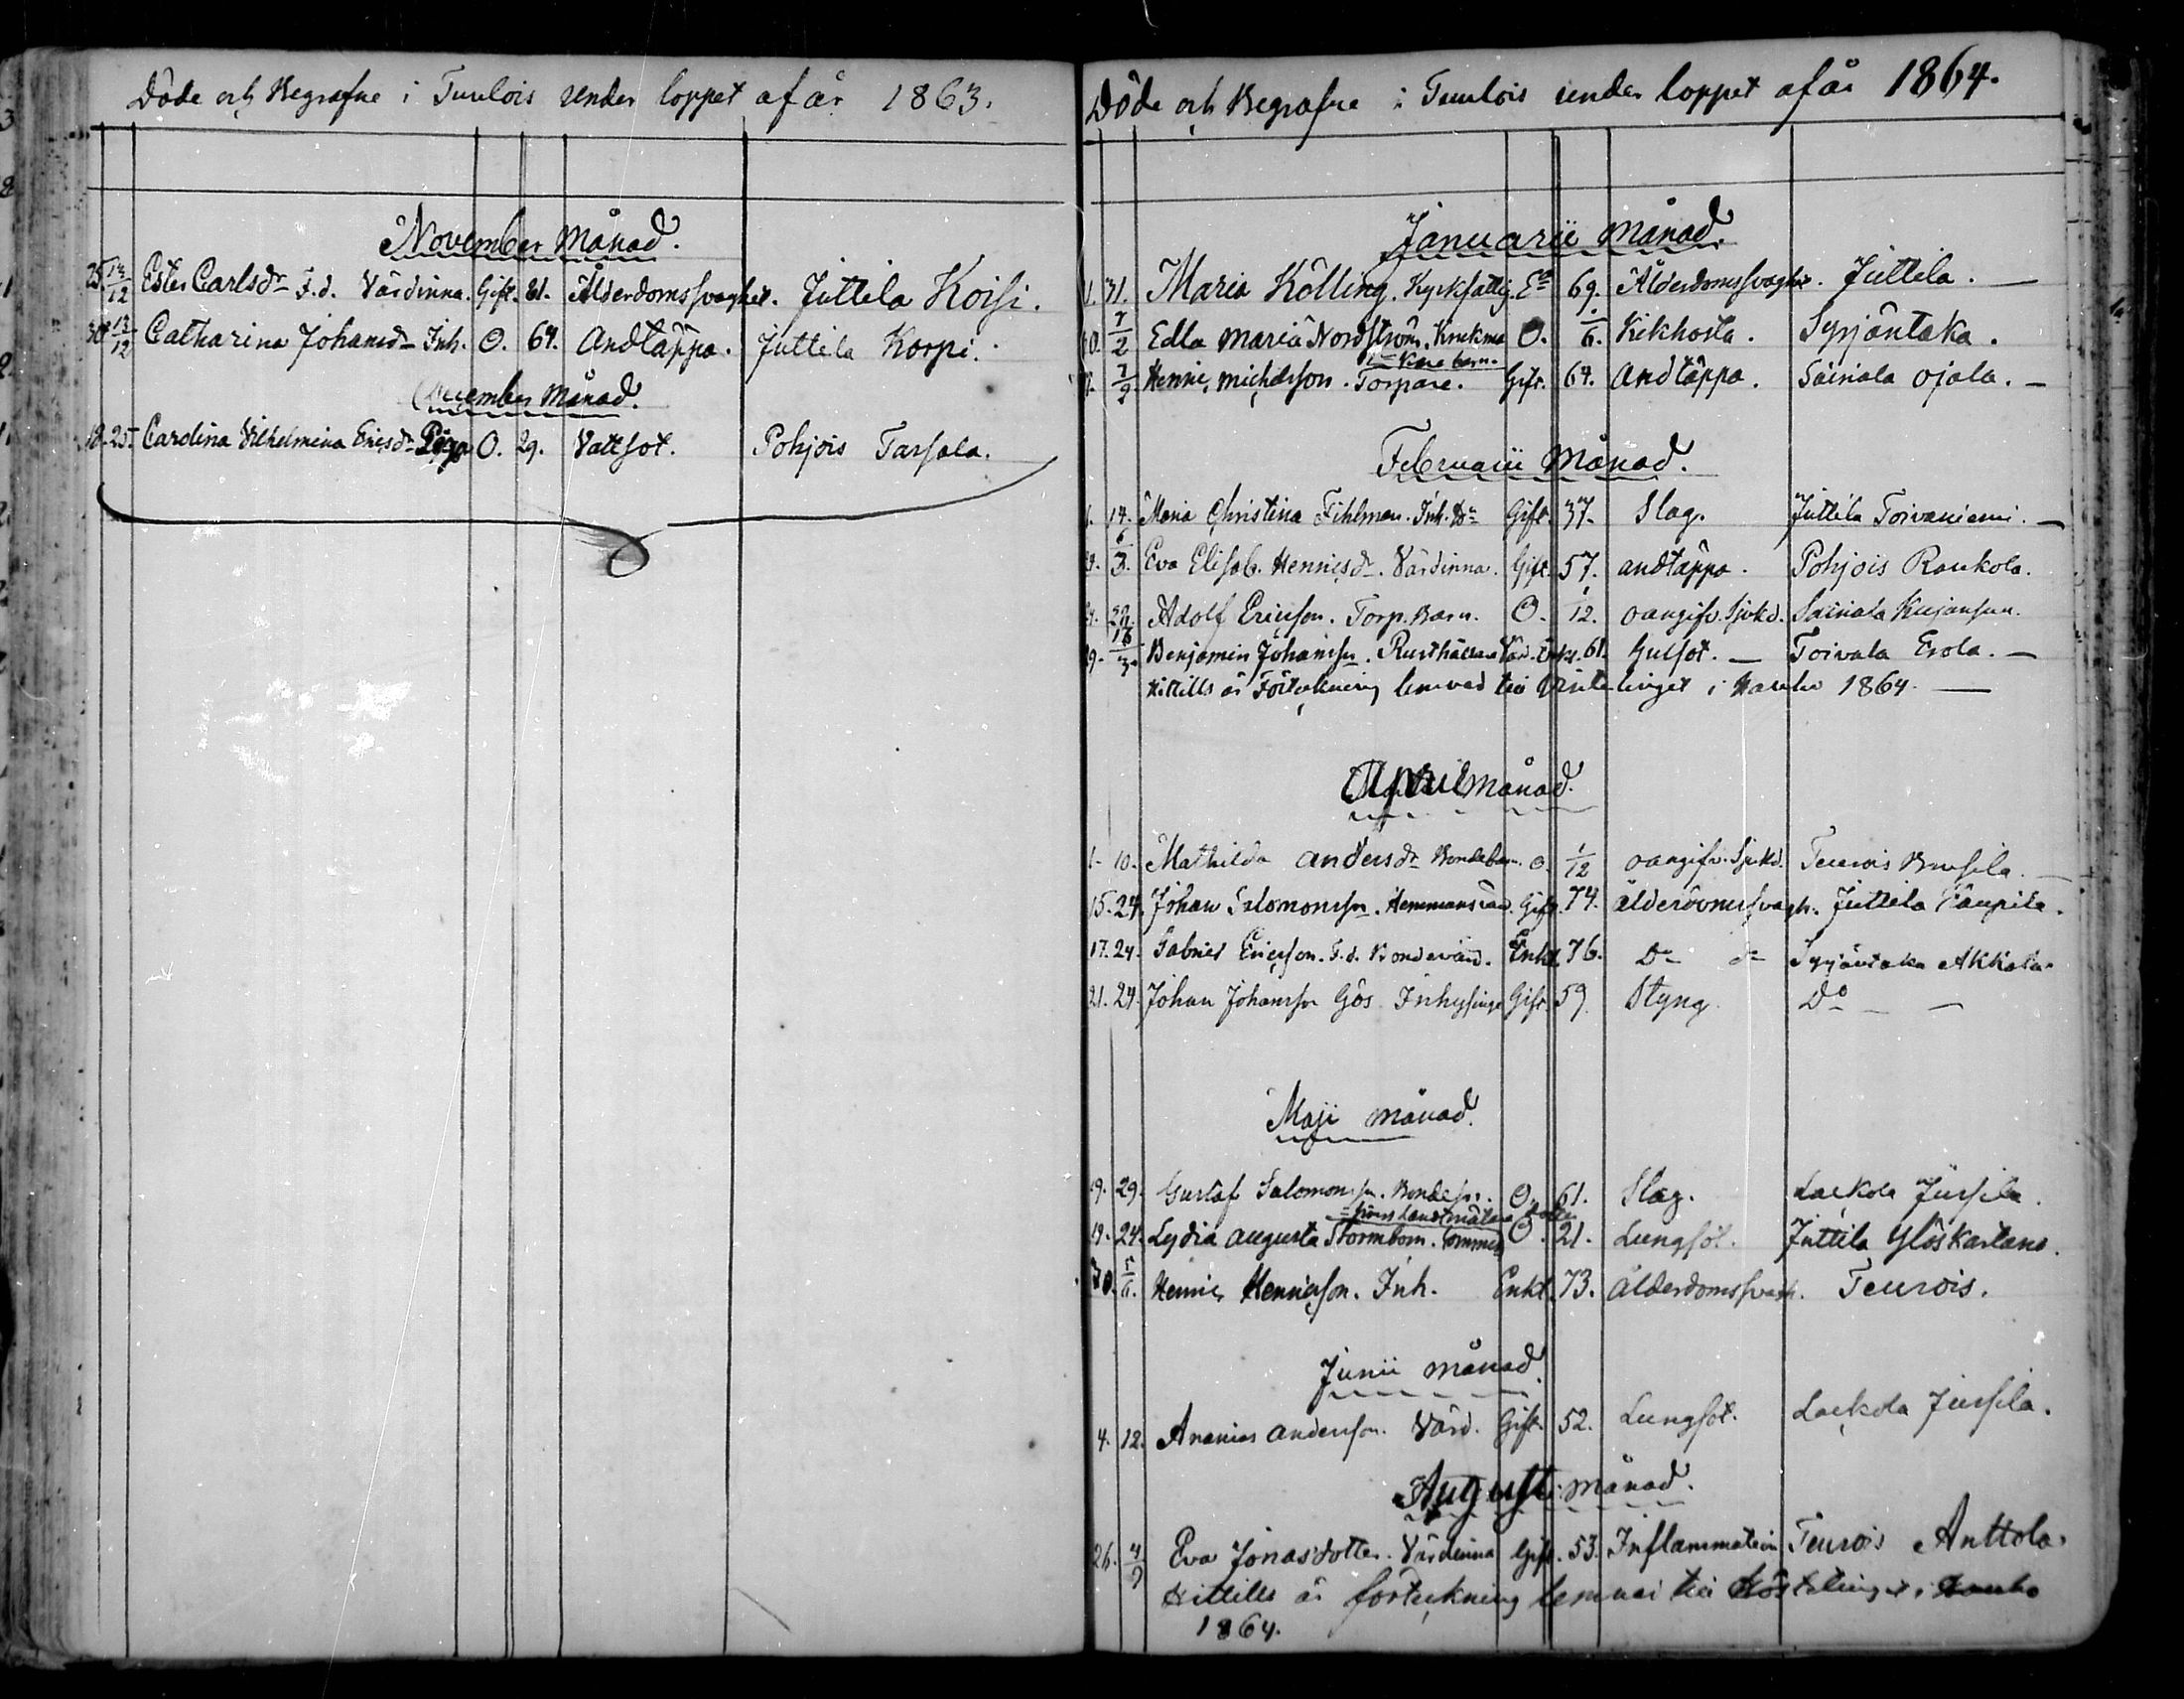 Döde och Begrafne i Tuulois under loppet af år 1863.
November Månad.
25. 13/12 Ester Carlsdr F.d. Värdinna. Gift. 81. Ålderdomssvaghet. Juttila Koisi.
30 13/12 Catharina Johansdr Inh. O. 64. Andtäppa. Juttila Korpi.
December Månad.
18. 25. Carolina Vilhelmina Ericsdr Piga O. 29. Vattsot. Pohjois Tarsala.
Döde och Begrafne i Tuulois under loppet af år 1864.
Januarii Månad.
31. Maria Kölling. Kyrkfattig. 69. Ålderdomssvaghet. Juttila.
7/2 Edla Maria Nordström. O. 6. Kikhosta. Syrjäntaka.
barn.
7/2 Henric Michelsson. Torpare. Gift. 64. Andtäppa. Sairiala Ojala.
Februarii Månad.
14. Maria Christina Fihlman. Inh. Gift. 37. Slag. Juttila Toivaniemi.
6/3. Eva Elisab. Henricsdr. Värdinna. Gift. 57. andtäppa. Pohjois Raukola.
Adolf Ericsson. Torp. Barn. O. 1/12. oangifv. Sjukd. Sairiala
Benjamin Johansson. Rusthållare Värd. Enkl. 61. Gulsot. Toivala Erola.
Hittills är Förteckning lemnad till Vintertinget i Hauho 1864.
April månad.
10. Mathilda Andersdr Bondebarn. O. 1/12 oangifv. Sjukd. Teurois
15. 24. Johan Salomonsson. Gift. 74. ålderdomssvagh. Juttila Kaupila.
17. 24. Gabriel Ericsson. F.d. Bondevärd. Enkl. 76. Do do Syrjäntaka Akkala.
21. 24. Johan Johansson Gös Inhysing Gift. 59. Styng. Do
Maji månad.
19. 29. Gustaf Salomonsson. Bondeson. O. 61. Slag. Laekola Jussila.
19. 24. Lydia Augusta Stormbom. O. 21. Lungsot. Juttila
30. 5/6. Henric Henricsson. Inh. Enkl. 73. ålderdomssvagh. Teurois.
Junii månad.
4. 12. Ananias Andersson. Värd. Gift. 52. Lungsot. Laekola Jussila.
Augusti månad.
26. 4/9 Eva Jonasdotter. Värdinna Gift. 53. Inflammation Teurois Anttola.
Hittills är förteckning lemnad till Höstetinget i Hauho
1864.